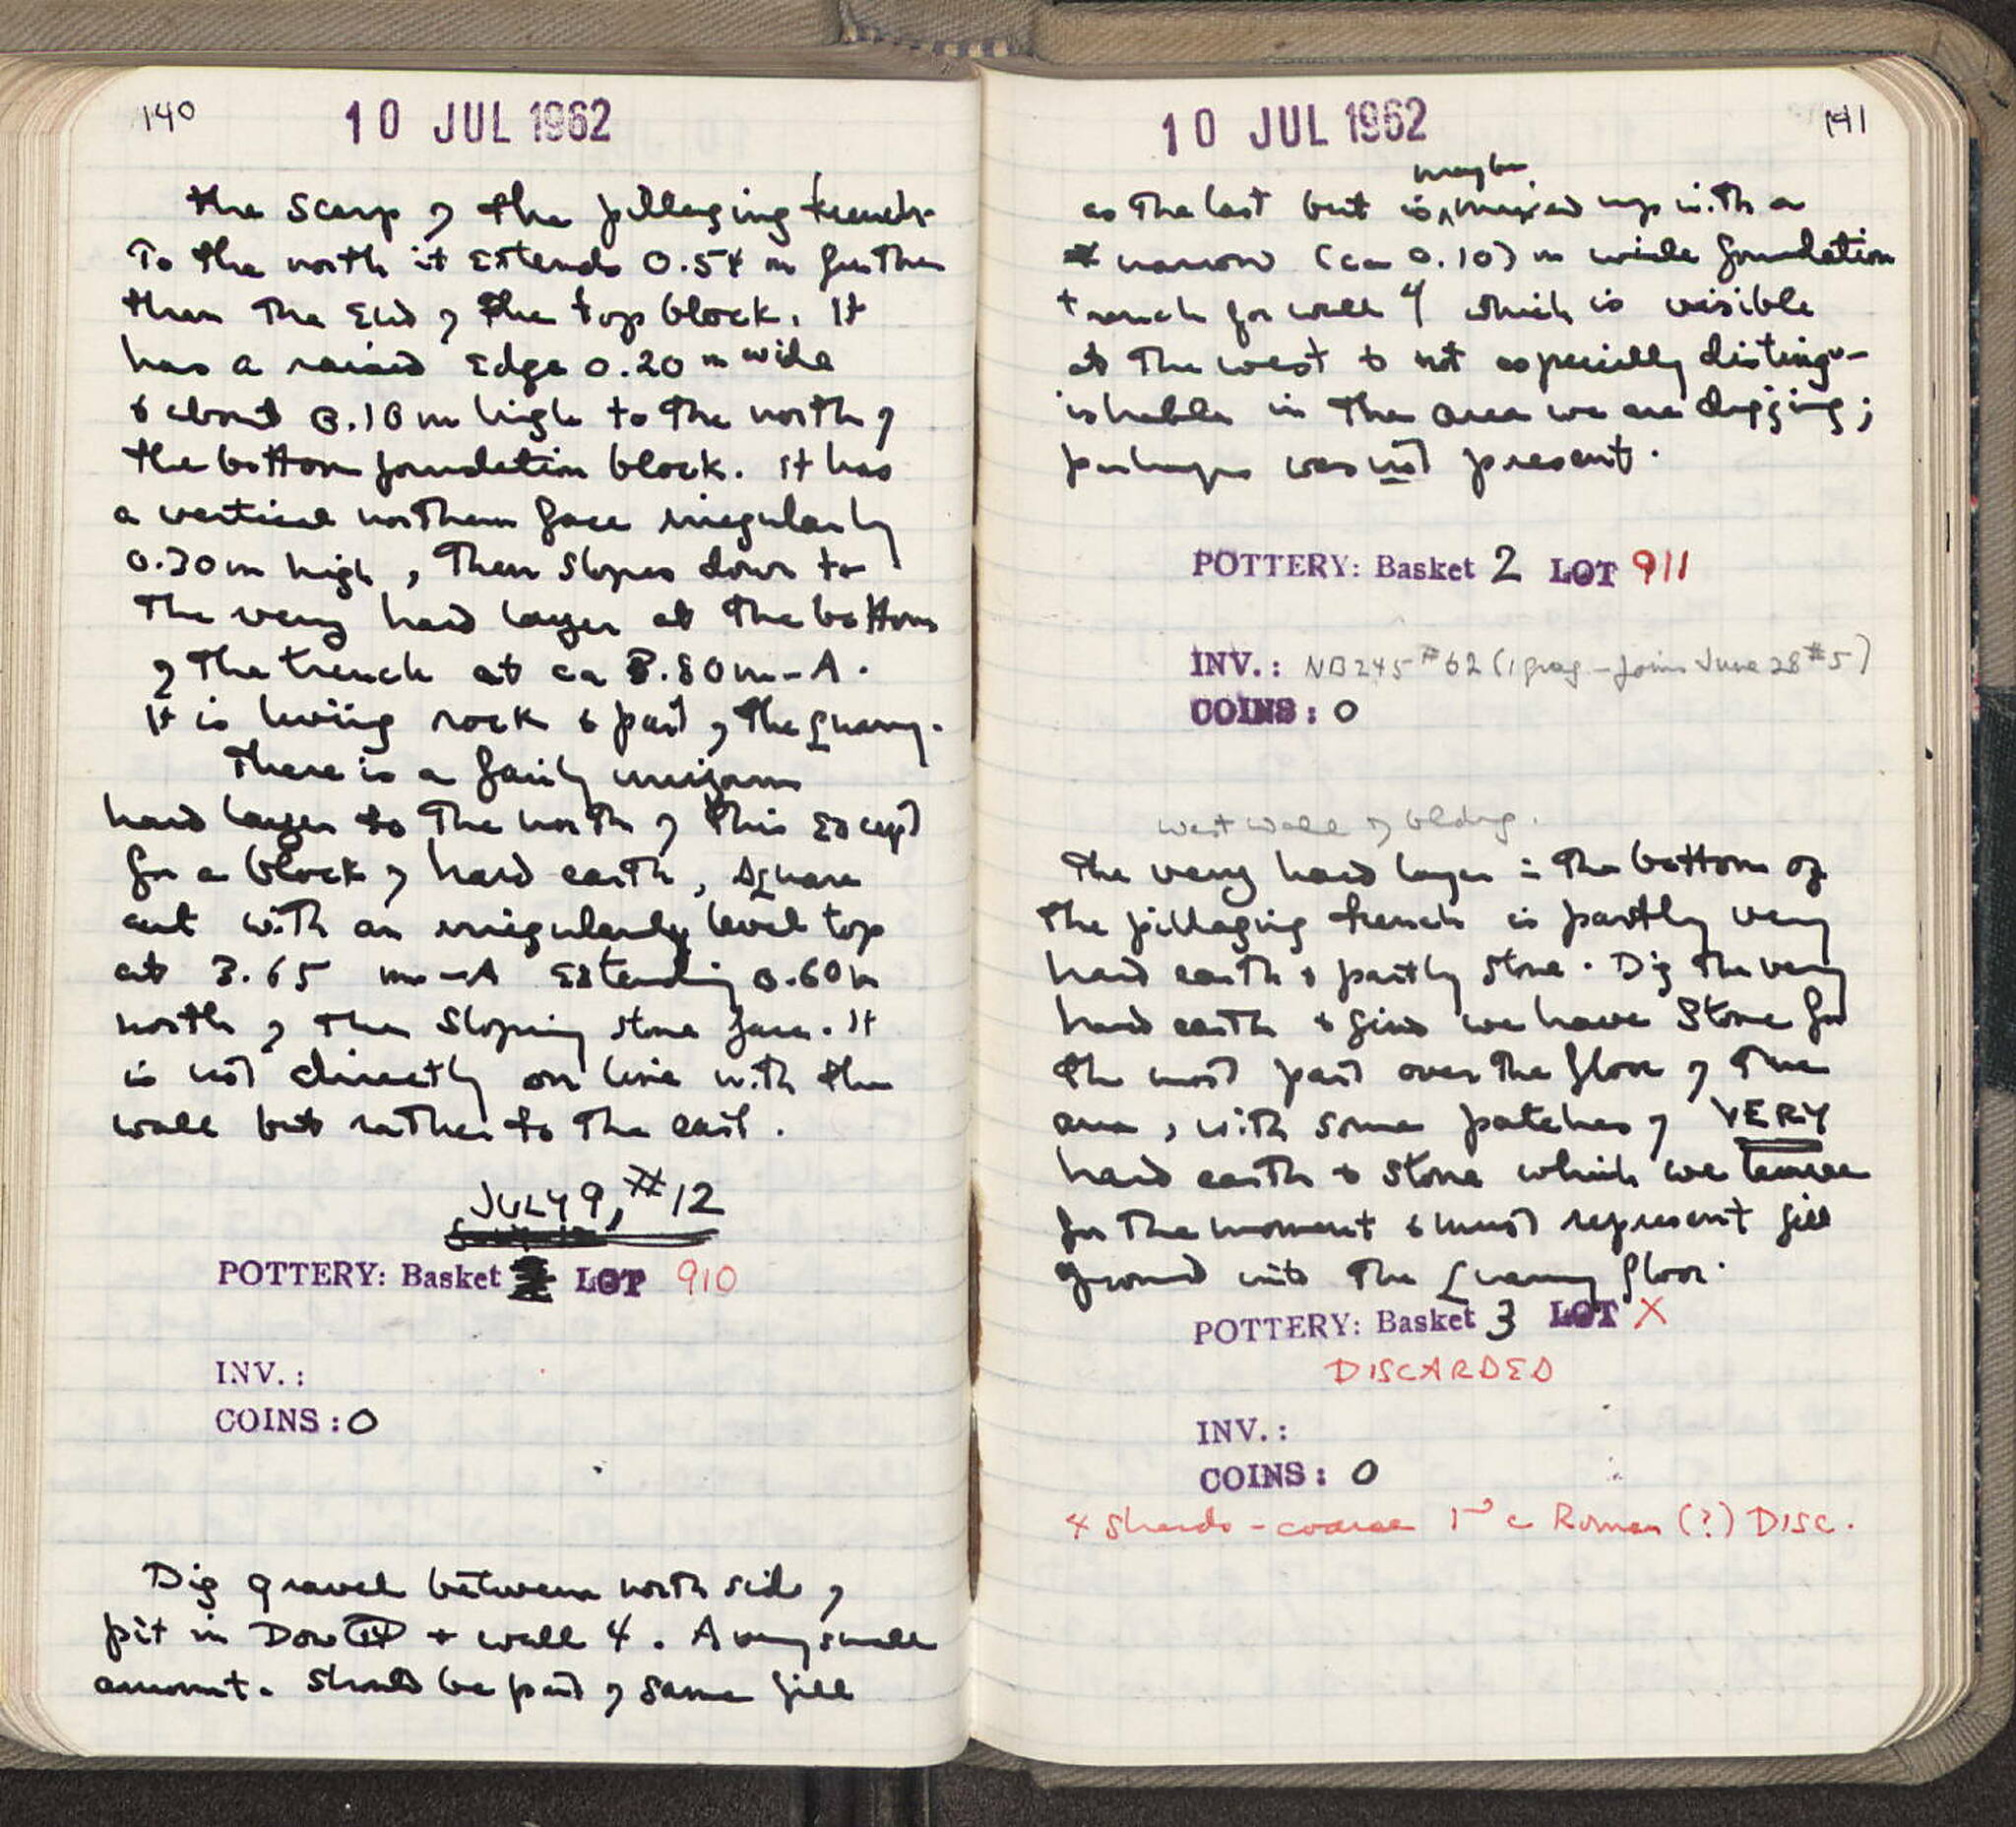 140
10 JUL 1962
the scarp of the pillaging trench.
To the north it extends 0.54 m further
than the end of the top block. It
has a raised edge 0.20 m wide
& about 0.10 m high to the north of
the bottom foundation block. It has
a vertical northern face irregularly
0.30 m high, then slopes down to
the very hard layer at the bottom
of the trench at ca 3.80 m - A.
It is living rock & part of the quarry.
There is a fairly uniform
hard layer to the north of this except
for a block of hard earth, square
cut with an irregularly level top
at 3.65 m - A extending 0.60 m
north of the sloping stone face. It
is not directly on line with the
wall but rather to the east.
JULY 9, #12
POTTERY: Basket LOT 910
INV.:
COINS: 0
Dig gravel between north side of
pit in Dow IV & wall 4. A very small
amount. Should be part of same fill
10 JUL 1962
141
as the last but is maybe mixed up with a
narrow (ca 0.10) m wide foundation
trench for wall 4 which is visible
at the west & not especially disting-
ishable in the area we are digging;
perhaps was not present.
POTTERY: Basket 2 LOT 911
INV.: NB245 #62 (1 frag - joins June 28 #5)
COINS: 0
West wall of bldng.
The very hard layer = the bottom of
the pillaging trench is partly very
hard earth & partly stone. Dig the very
hard earth & find we have stone for
the most part over the floor of the
area, with some patches of VERY
hard earth & stone which we leave
for the moment & must represent fill
ground into the quarry floor.
POTTERY: Basket 3 LOT X
DISCARDED
INV.:
COINS: 0
4 sherds - coarse 1st c Roman (?) DISC.